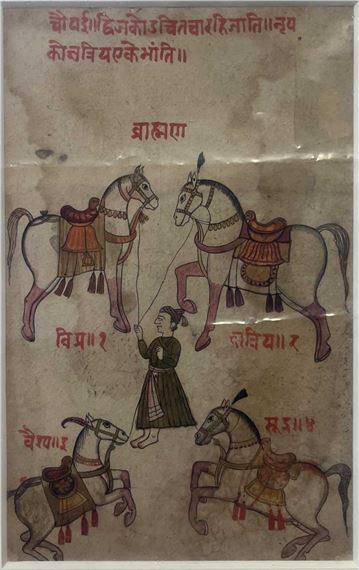 चौपई॥द्विजकोउचितचारहिजाति॥नृप
कोछत्रियएकेभांति॥
ब्राह्मण
विप्र॥१
क्षत्रिय॥२
वैश्य॥३
सूद्र॥४